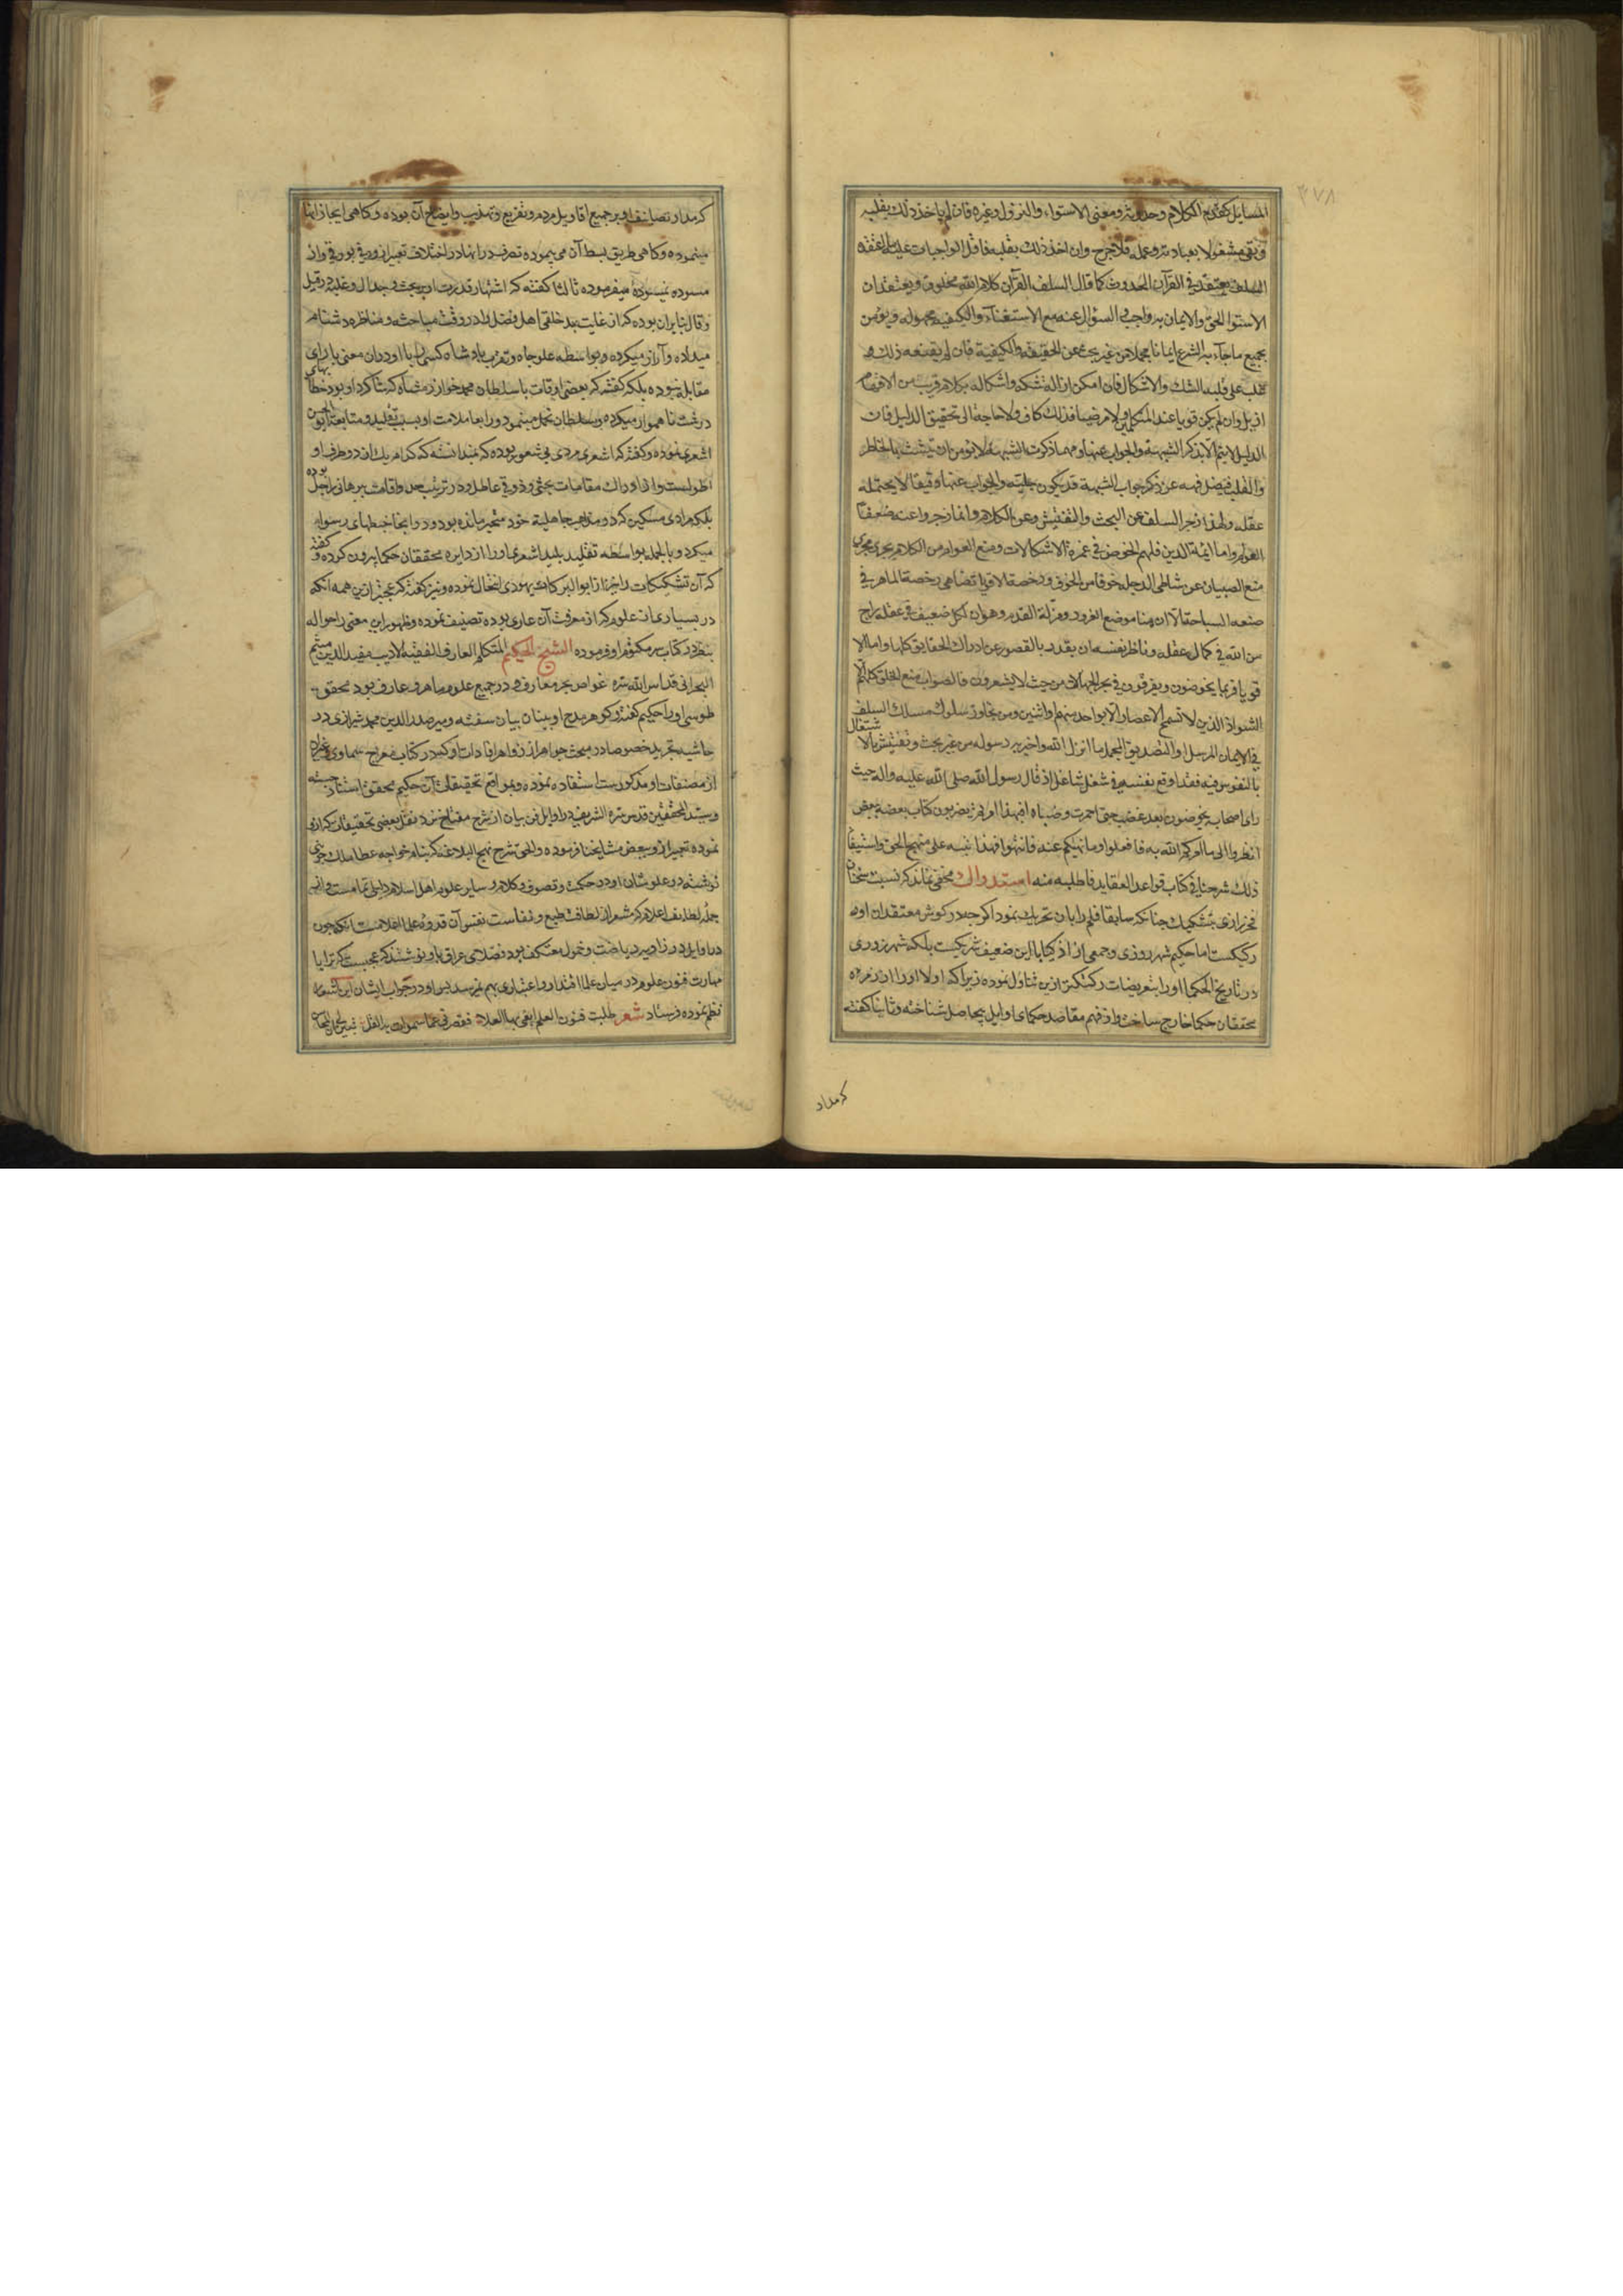 ٣٧٨
المسایل کقدم الکلام وحدوثه ومعنی الاستواء والنزول وغیره فان لم یاخذ ذلک بقلبه
وبقی مشغولا بعبادته وعمله فلا حرج وان اخذ ذلک بقلبه فاقل الواجبات علیه ما اعتقده
السلف یعتقد فی القرآن الحدوث کما قال السلف القرآن کلام الله مخلوق ویعتقد ان
الاستوا الحق والایمان به واجب والسؤال عنه مع الاستغناء والکیفیه مجهوله ویؤمن
بجمیع ما جاء به الشرع ایمانا مجملا من غیر بحث عن الحقیقه والکیفیة فان لم یقنعه ذلک و
غلب علی قلبه الشک والاشکال فان امکن ازالة شکه واشکاله بکلام قریب من الافهام
ازیل وان لم یکن قویا عند المتکلمین ولا مرضیا فذلک کاف ولا حاجة الی تحقیق الدلیل فان
الدلیل لا یتم الا بذکر الشبهة والجواب عنها ومهما ذکرت الشبهة لا یؤمن ان یتشبث بالخاطر
والقلب فیضل فهمه عن ذکر جواب الشبهة قد یکون جلیة والجواب عنها دقیقا لا یحتمله
عقله ولهذا زجر السلف عن البحث والتفتیش وعن الکلام وانما زجروا عنه ضعفاء
العوام واما ائمة الدین فلهم الخوض فی غمرة الاشکالات ومنع العوام من الکلام یجری مجری
منع الصبیان عن شاطی الدجله خوفا من الغرق ورخصة الاقویا تضاهی رخصة الماهر فی
صنعه السباحة الا ان هنا موضع الغرور ومزلة القدم وهو ان کل ضعیف فی عقله راج
من الله فی کمال عقله وناظر نفسه ان یقدر بالقصور عن ادراک الحقایق کلها واما الا
قویا فربما یخوضون ویغرقون فی بحر الجهالات من حیث لا یشعرون فالصواب منع الخلق کلهم الا
الشواذ الذین لا تسمح الاعصار الا بواحد منهم او اثنین ومن تجاوز سلوک مسلک السلف
فی الایمان المرسل والتصدیق المجمل ما انزل الله واخبر به رسوله من غیر بحث وتفتیش بالاشتغال
بالنفوس فیه فقد اوقع نفسه فی شغل شاغل اذ قال رسول الله صلی الله علیه واله حیث
رای اصحابه یخوضون بعد غضب حتی احمرت وجنتاه افبهذا امرتم تضربون کتاب بعضه ببعض
انظروا الی ما امرکم الله به فافعلوا وما نهیکم عنه فانتهوا فهذا نبیه علی منهج الحق واستیفاء
ذلک شرحنا فی کتاب قواعد العقاید فاطلبه منه استدراک مخفی نماند که نسبت سخنان
فخر رازی بتشکیک چنانکه سابقا قلم را بان تحریک نمود اگرچه در کوش معتقدان او
رکیکست اما حکیم شهرزوری وجمعی از اذکیا با این ضعیف شریکست بلکه شهرزوری
در تاریخ الحکما او را بتعریضات رکیکتر ازین تناول نموده زیرا که اولا او را از زمره
محققان حکما خارج ساخت واز فهم مقاصد حکمای اوایل بیحاصل شناخته وثانیا کفته
که مدار
که مدار تصانیف او بر جمیع اقاویل مردم وتفریع وتهذیب وایضاح آن بوده وکاهی ایجاز انها
مینموده وکاهی طریق بسط آن می پیموده تصرف در انها در اختلاف تعبیر از ورقی بورقی واز
مسوده بمسوده میفرموده ثالثا کفته که اشتهار قدرت او بر بحث وجدال وغلبه در قیل
وقال بنابران بوده که از غایت بد خلقی اهل فضل را در وقت مباحثه ومناظره دشنام
میداده وآزار میکرده وبواسطه علو جاه وتقرب پادشاه کسی را با او در ان معنی یارای
مقابله نبوده بلکه کفته که بعضی اوقات با سلطان محمد خوارزمشاه که شاکرد او بود خطابهای
درشت ناهموار میکرده وسلطان تحمل مینمود ورابعا ملامت او بسبب تقلید ومتابعة ابو الحسن
اشعری نموده وکفته که اشعری مردی بی شعور بوده که نمیدانسته که کدام یک از دو طرف او
اطولست واز ادراک مقامات بحثی وذوقی عاطل ودر ترتیب حد واقامت برهان راجل بوده
بلکه مرادی مسکین که در مذاهب جاهلیة خود متحیر مانده بود ودر اینجا خبطهای رسوا
میکرد وبالجمله بواسطه تقلید بلید اشعری او را از دایره محققان حکما بیرون کرده وکفته
که آن تشکیکات را نیز از ابو البرکات یهودی انتحال نموده ونیز کفته که عجبتر ازین همه آنکه
در بسیاری از علوم که از معرفت آن عاری بوده تصنیف نموده وظهور این معنی را حواله
بنظر در کتاب سر مکتوم او فرموده الشیخ الحکیم المتکلم العارف الفقیه الادیب مفید الدین میثم
البحرانی قدس الله سره غواص بحر معارف ودر جمیع علوم ماهر وعارف بود محقق
طوسی او را حکیم کفته وکوهر مدح او ببنان بیان سفته ومیر صدر الدین محمد شیرازی در
حاشیه تجرید خصوصا در مبحث جواهر از زواهر افادات او که در کتاب معراج سماوی وغیره
از مصنفات او مذکورست استفاده نموده وبمواقع تحقیقات آن حکیم محقق استناد جسته
وسید المحققین قدس سره الشریف در اوایل فن بیان از شرح مفتاح نزد نقل بعضی تحقیقات که از او
نموده تعبیر ازو ببعض مشایخنا فرموده والحق شرح نهج البلاغه که بنام خواجه عطا ملک جوینی
نوشته در علو شان او در حکمت وتصوف وکلام وسایر علوم اهل اسلام دلیلی تمامست واز
جمله لطایف اعلام که مشعر از لطافت طبع ونفاست نفس آن قدوه علما اعلامست آنکه چون
در اوایل در زاویه ریاضت وخمول معتکف بود فضلای عراق باو نوشتند که عجبست که ترا با
مهارت فنون علوم در میان علما اقتدار واعتباری بهم نرسد پس او در جواب ایشان این اشعار
نظم نموده فرستاد شعر طلبت فنون العلم ابغی بها العلا فقصر فی عما سموات به القل تبین لی ان المحاسن